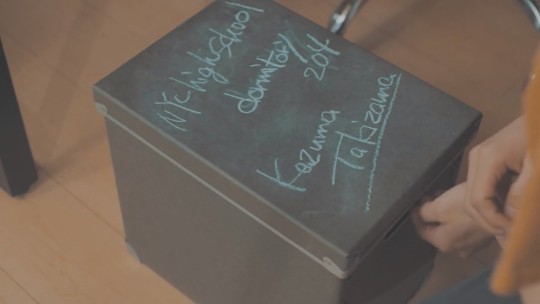 NYC highschool
dormitory/
204
Kazuma
Takizawa